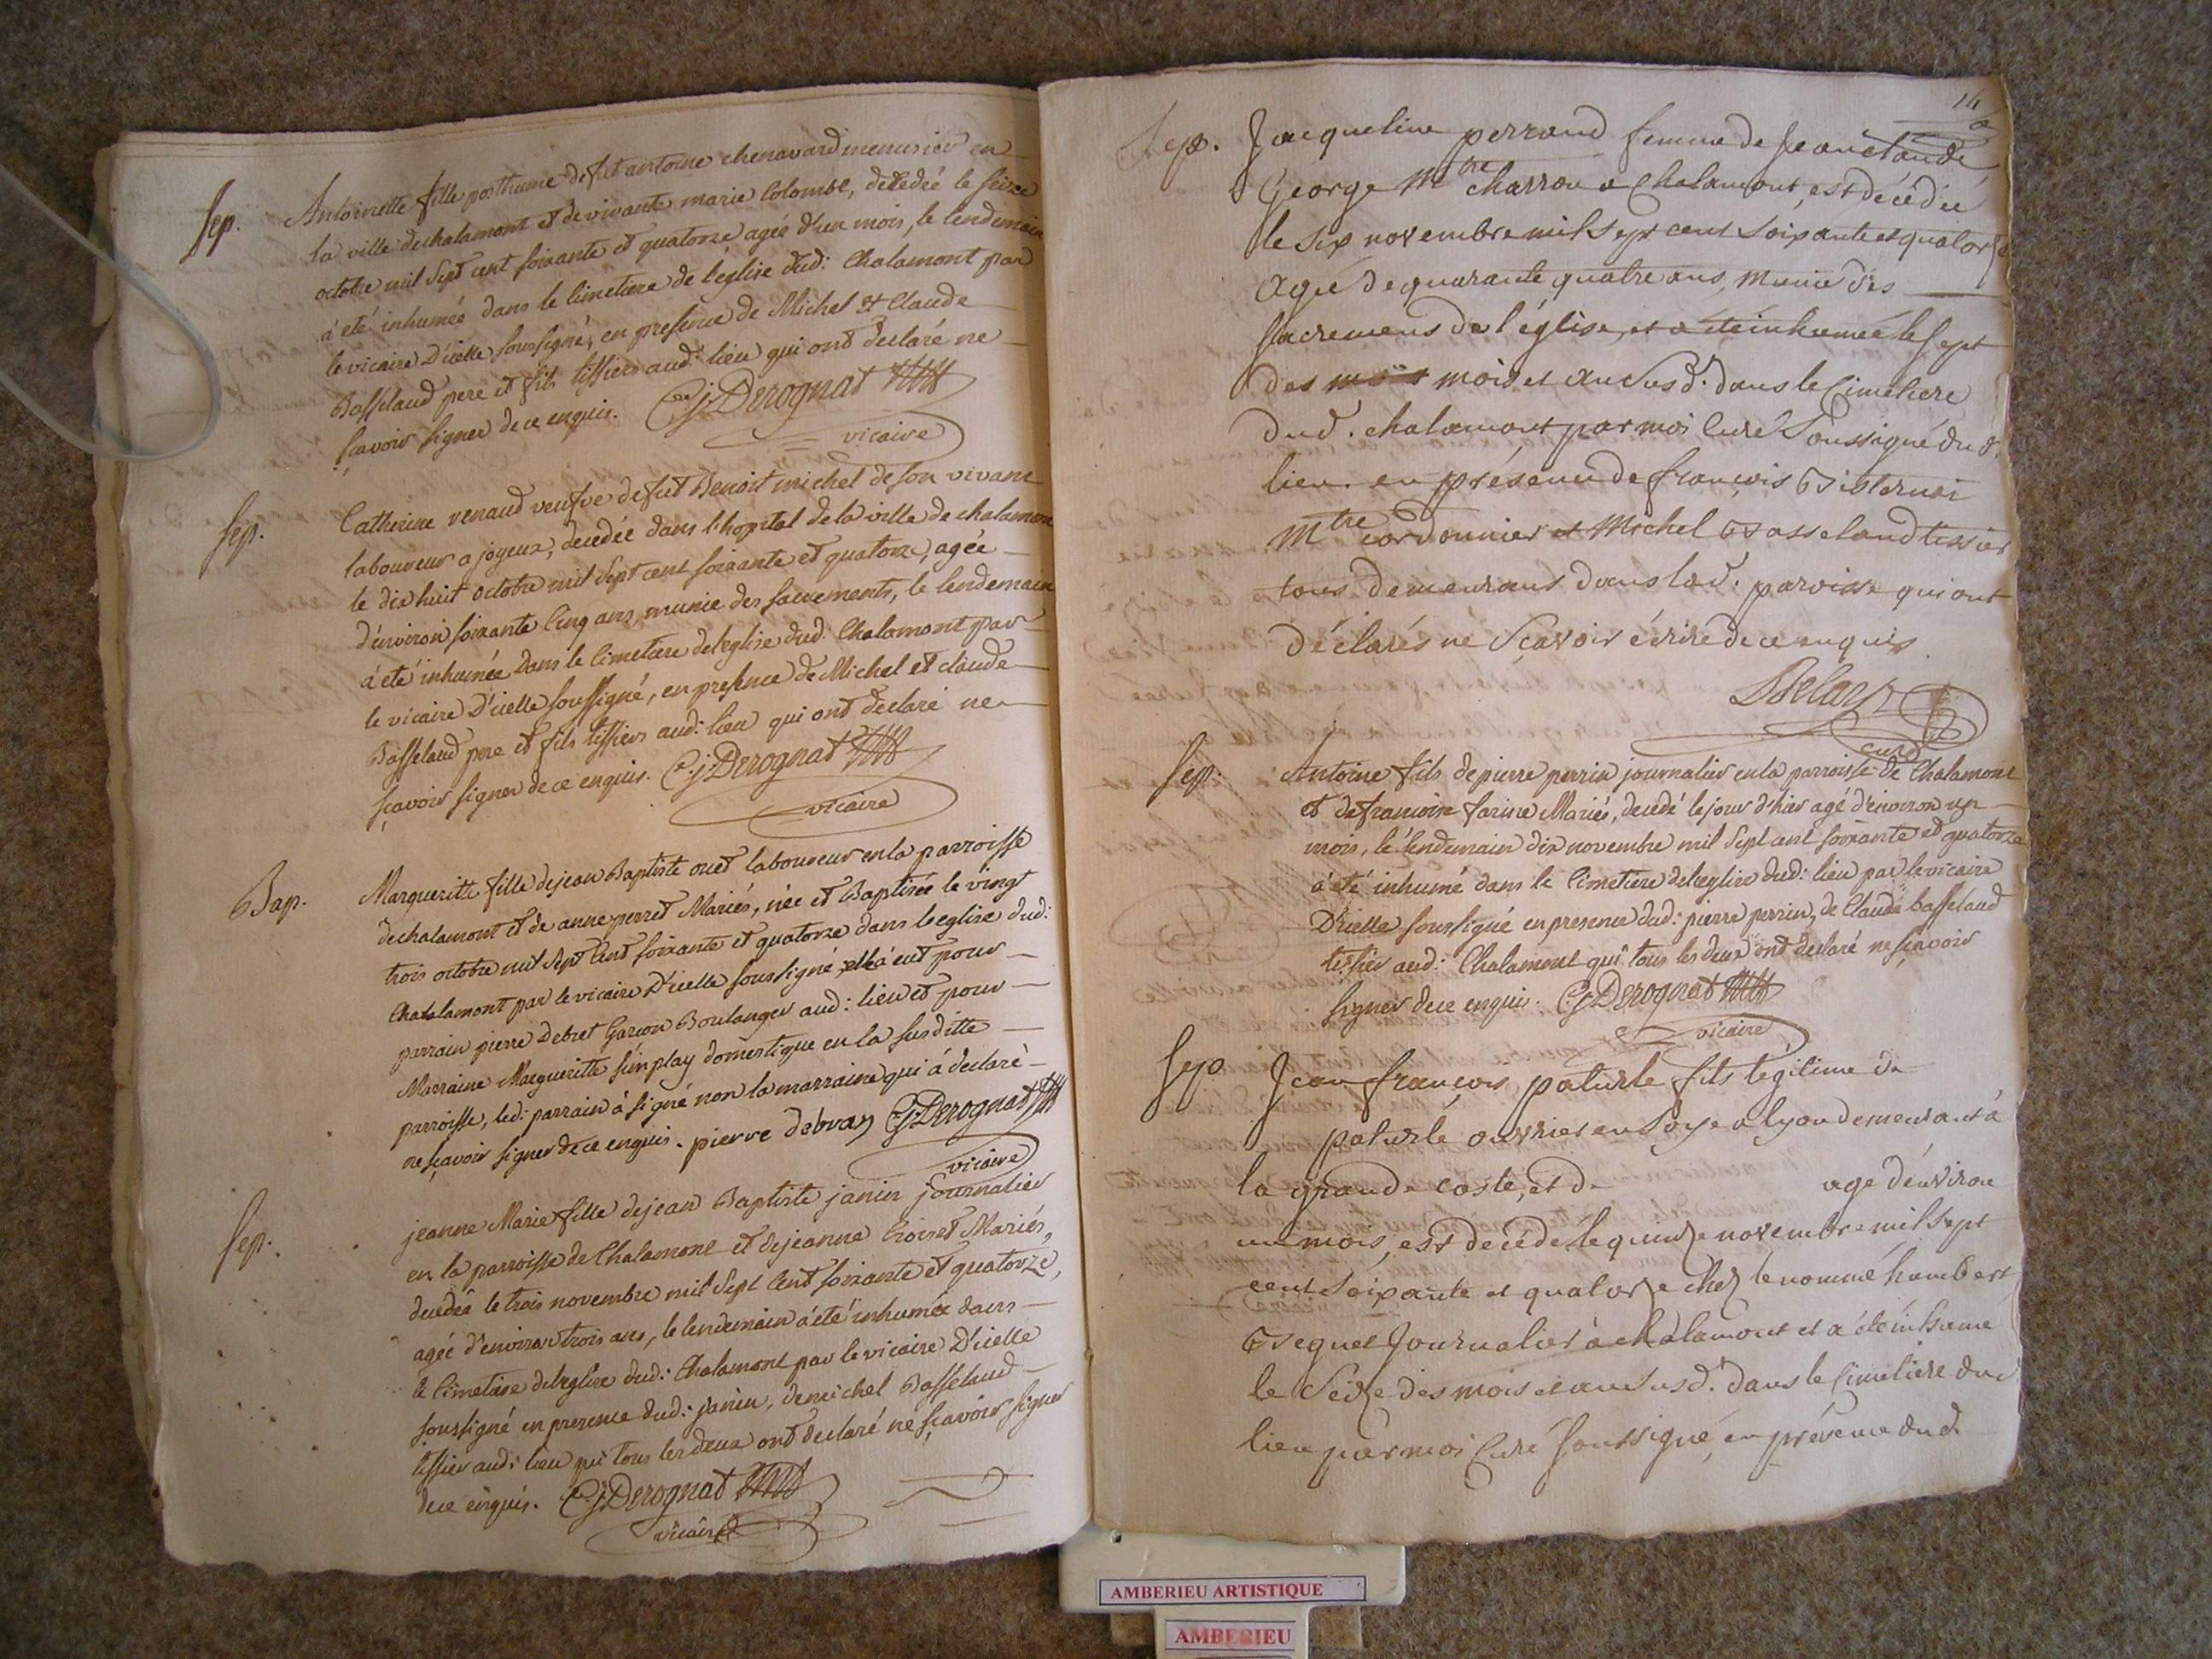 Sep. Antoinette fille posthume defut antoine chenavard menusier en
la ville dechalamont et de vivante marie Colombe, décedée le seize
octobre mil Sept cent soixante et quatorze agée d'un mois, le lendemain
á eté inhumée dans le Cimetiere de l'eglise dud: Chalamont par
le vicaire D'icelle soussigné, en presence de Michel et Claude
Basseland pere et fils tissiers aud: lieu qui ont declaré ne
sçavoir signer de ce enquis. C.j. Derognat
vicaire
Sep. Catherine renaud veufve defut Benoit michel de son vivant
laboureur a joyeux, decedée dans l'hopital de la ville de chalamont
le dix huit octobre mil Sept cent soixante et quatorze, agée
d'environ soixante Cinq ans, munie des sacrements, le lendemain
á eté inhumée Dans le Cimetiere del'eglise dud: Chalamont par
le vicaire D'icelle soussigné, en presence de Michel et claude
Basseland pere et fils tissiers aud: lieu qui ont declaré ne
sçavoir signer de ce enquis. C.j. Derognat
vicaire
Bap. Margueritte fille dejean Baptiste ouet laboureur en la parroisse
dechalamont et de anne perret Mariés, née et Baptisée le vingt
trois octobre mil Sept Cent soixante et quatorze dans leeglise dud:
Chatalamont par le vicaire D'icelle soussigné, elle á eut pour
parrain pierre Debret Garcon Boulanger aud: lieu et pour
Marraine Margueritte simplay domestique en la susditte
parroisse, led: parrain á signé non la marraine qui á declaré
ne sçavoir signer de ce enquis. pierre debray C.j. Derognat
vicaire
Sep. jeanne Marie fille dejean Baptiste janin journalier
en la parroisse de Chalamont et dejeanne Croiset Mariés,
decedée le trois novembre mil Sept Cent soixante et quatorze,
agée d'environ trois ans, le lendemain á eté inhumée dans
le Cimetiere del'eglise dud: Chalamont par le vicaire D'icelle
soussigné en presence dud: janin, de michel Basseland
tissier aud: lieu qui tous les deux ont declaré ne sçavoir signer
de ce enquis. C.j. Derognat
vicaire
14
Sep. Jacqueline perraud femme de Jean claude
George Mtre charron a Chalamont, est décédée
le six novembre mil Sept cent Soixante et quatorze
agée de quarante quatre ans, munie des
sacremens de l'église, et a été inhumée le sept
des mois et an Susd. dans le Cimetiere
dud. chalamont par moi Curé Soussigné dud.
lieu. en présence de françois
Mtre cordonnier et Michel Basseland tissier
tous demeurans dans lad. paroisse qui ont
déclarés ne Sçavoir écrire de ce enquis
curé
Sep. Antoine fils de pierre perrin journalier en la parroisse de Chalamont
et de francoise farine Mariés, decedé le jour d'hier agé d'environ un
mois, le lendemain dix novembre mil Sept cent soixante et quatorze
á eté inhumé dans le Cimetiere del'eglise dud: lieu par le vicaire
D'icelle soussigné en presence dud: pierre perrin, de Claude basseland
tissier aud: Chalamont qui tous les deux ont declaré ne sçavoir
signer de ce enquis. C.j. Derognat
vicaire
Sep. Jean françois paturle fils légitime de
paturle ouvrier en Soye a lyon demeurant à
la grande coste, et de age d'environ
un mois, est décédé le quinze novembre mil Sept
cent Soixante et quatorze chez le nommé humbert
Beguet Journalier à chalamont et a été inhumé
le Seize des mois et an Susd. dans le Cimetiere dud.
lieu par moi Curé Soussigné, en présence dud.
AMBERIEU ARTISTIQUE
AMBERIEU